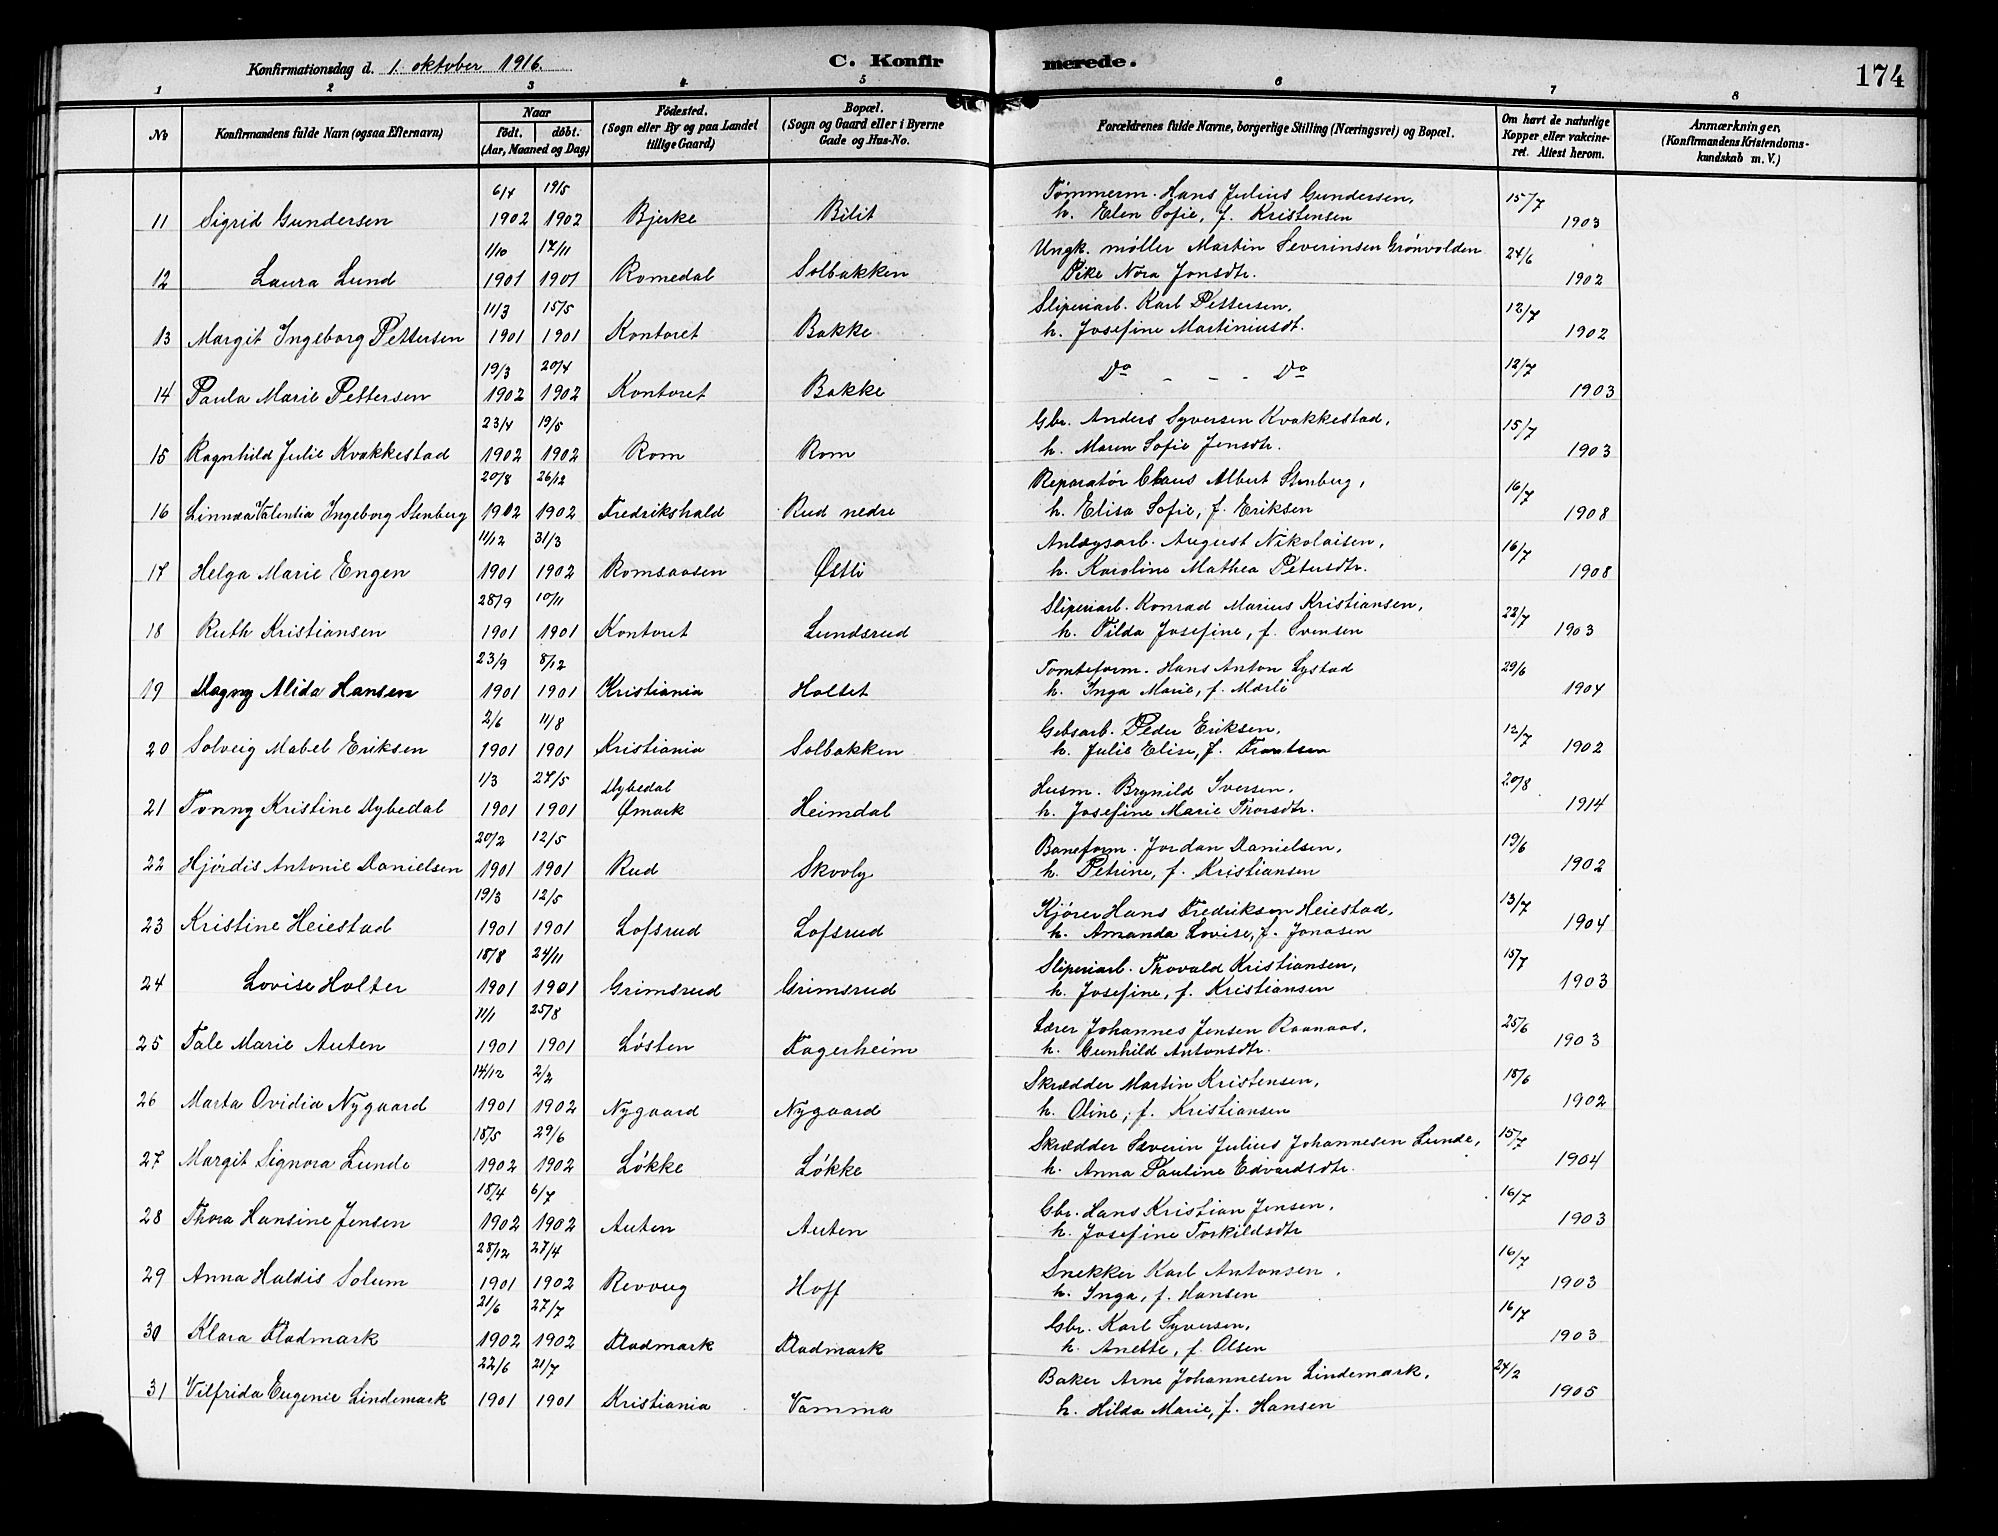 Konfirmationsdag d. 1. oktober 1916.
C. Konfirmerede.
174
1 2 3 4 5 6 7 8
No
Konfirmandens fulde Navn (ogsaa Efternavn)
Naar
födt. döbt.
(Aar, Maaned og Dag)
Födested.
(Sogn eller By og paa Landet
tillige Gaard)
Bopæl.
(Sogn og Gaard eller i Byerne
Gade og Hus-No.
Forældrenes fulde Navne, borgerlige Stilling (Næringsvei) og Bopæl.
Om havt de naturlige
Kopper eller vakcine-
ret. Attest herom.
Anmærkninger.
(Konfirmandens Kristendoms-
kundskab m. V.)
6/4 19/5 Tømmerm. Hans Julius Gundersen, 15/7
11 Sigrid Gundersen 1902 1902 Bjerke Bilit h. Elen Sofie, f. Kristensen 1903
1/10 17/11 Ungk. møller Martin Severinsen Grønvolden 24/6
12 Laura Lund 1901 1901 Romedal Solbakken Pike Nora Jonsdtr. 1902
11/3 15/5 Sliperiarb. Karl Pettersen, 12/7
13 Margit Ingeborg Pettersen 1901 1901 Kontoret Bakke h. Josefine Martiniusdt. 1902
19/3 20/4 Do - - - Do 12/7
14 Paula Marie Pettersen 1902 1902 Kontoret Bakke 1903
23/4 19/5 Gbr. Anders Syversen Kvakkestad, 15/7
15 Ragnhild Julie Kvakkestad 1902 1902 Rom Rom h. Maren Sofie Jensdtr. 1903
20/8 26/12 Reparatør Claus Albert Stenberg, 16/7
16 Linnæa Valentia Ingeborg Stenberg 1902 1902 Fredrikshald Rud nedre h. Elisa Sofie, f. Eriksen 1908
11/12 31/3 Anlægsarb. August Nikolaisen, 16/7
17 Helga Marie Engen 1901 1902 Romsaasen Østli h. Karoline Mathea Petersdtr. 1908
28/9 10/11 Sliperiarb. Konrad Marius Kristiansen, 22/7
18 Ruth Kristiansen 1901 1901 Kontoret Lundsrud h. Tilda Josefine, f. Svensen 1903
23/9 8/12 Tomteform. Hans Anton Lystad 29/6
19 Dagny Alida Hansen 1901 1901 Kristiania Holtet h. Inga Marie, f. Mærli 1904
2/6 11/8 Gebsarb. Peder Eriksen, 12/7
20 Solveig Mabel Eriksen 1901 1901 Kristiania Solbakken h. Julie Elise, f. Frantsen 1902
1/3 27/5 Dybedal Husm. Brynild Iversen, 20/8
21 Tonny Kristine Dybedal 1901 1901 Ømark Heimdal h. Josefine Marie Thorsdtr. 1914
20/2 12/5 Baneform. Jordan Danielsen, 19/6
22 Hjørdis Antonie Danielsen 1901 1901 Rud Skovly h. Petrine, f. Kristiansen 1902
19/3 12/5 Kjører Hans Fredriksen Heiestad, 13/7
23 Kristine Heiestad 1901 1901 Lofsrud Lofsrud h. Amanda Lovise, f. Jonasen 1904
18/8 24/11 Sliperiarb. Thovald Kristiansen, 15/7
24 Lovise Holter 1901 1901 Grimsrud Grimsrud h. Josefine, f. Kristiansen 1903
11/1 25/8 Lærer Johannes Jensen Raanaas, 25/6
25 Tale Marie Auten 1901 1901 Løsten Fagerheim h. Gunhild Antonsdtr. 1903
14/12 2/2 Skrædder Martin Kristensen, 18/6
26 Marta Ovidia Nygaard 1901 1902 Nygaard Nygaard h. Oline, f. Kristiansen 1902
18/5 29/6 Skrædder Severin Julius Johannesen Lunde, 15/7
27 Margit Signora Lunde 1902 1902 Løkke Løkke h. Anna Pauline Edvardsdtr. 1904
18/4 6/7 Gbr. Hans Kristian Jensen, 16/7
28 Thora Hansine Jensen 1902 1902 Auten Auten h. Josefine Torkildsdtr 1903
28/12 27/4 Snekker Karl Antonsen, 16/7
29 Anna Haldis Solum 1901 1902 Revoug Hoff h. Inga, f. Hansen 1903
21/6 27/7 Gbr. Karl Syversen, 16/7
30 Klara Fladmark 1902 1902 Fladmark Fladmark h. Anette, f. Olsen 1903
22/6 21/7 Baker Arne Johannesen Lindemark, 24/2
31 Vilfrida Eugenie Lindemark 1901 1901 Kristiania Vamma h. Hilda Marie, f. Hansen 1905